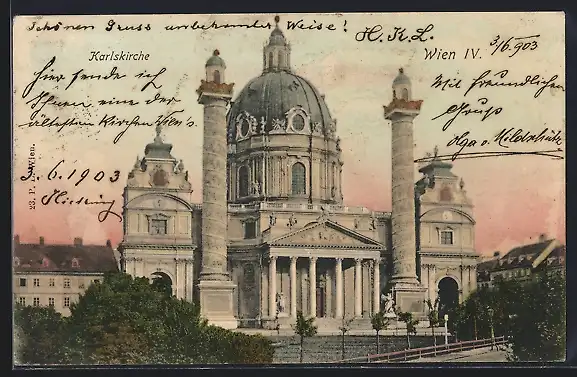 Schönen Gruss unbekannter Weise!
H. K. L.
Karlskirche
Wien IV. 3/6.903
Hier sende ich
Ihnen eine der
ältesten Kirchen Wien's.
3. 6. 1903
Hietzing
Mit freundlichen
Gruß
Olga v.
23, P. L. Wien.